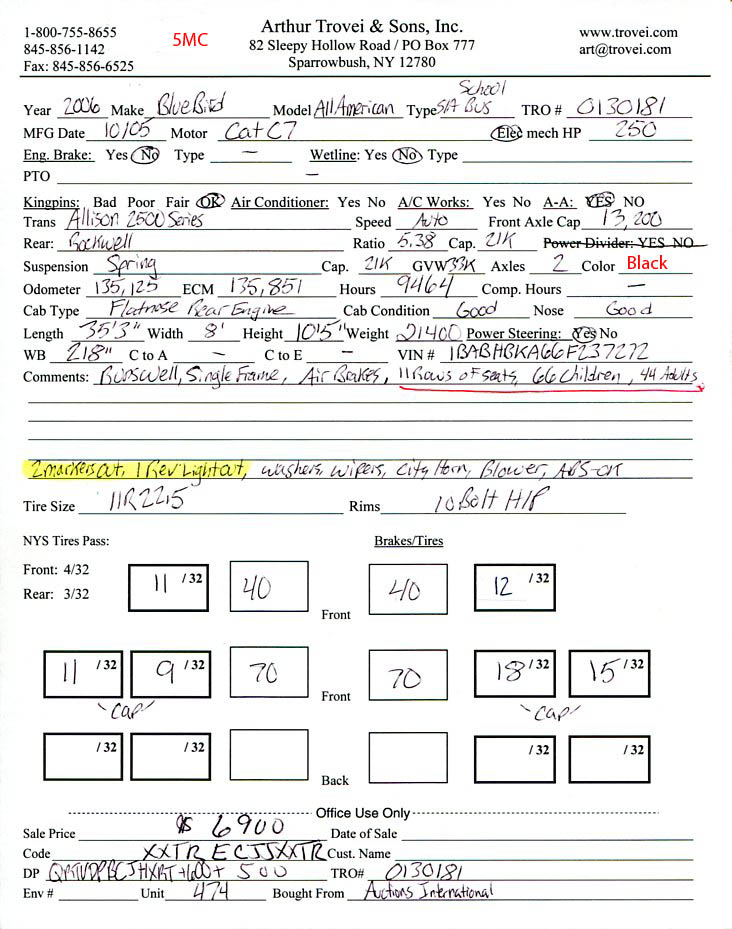 1-800-755-8655
845-856-1142
Fax: 845-856-6525
5MC
Arthur Trovei & Sons, Inc.
82 Sleepy Hollow Road / PO Box 777
Sparrowbush, NY 12780
www.trovei.com
art@trovei.com
Year 2006 Make BlueBird Model All American Type S/A School Bus TRO # 0130181
MFG Date 10/05 Motor Cat C7 Elec mech HP 250
Eng. Brake: Yes No Type — Wetline: Yes No Type
PTO —
Kingpins: Bad Poor Fair OK Air Conditioner: Yes No A/C Works: Yes No A-A: YES NO
Trans Allison 2500 Series Speed Auto Front Axle Cap 13,200
Rear: Rockwell Ratio 5.38 Cap. 21K Power Divider: YES NO
Suspension Spring Cap. 21K GVW 33K Axles 2 Color Black
Odometer 135,125 ECM 135,851 Hours 9464 Comp. Hours —
Cab Type Flatnose Rear Engine Cab Condition Good Nose Good
Length 35'3" Width 8' Height 10'5" Weight 21400 Power Steering: Yes No
WB 218" C to A — C to E — VIN # 1BABHBKA66F237272
Comments: Runswell, Single Frame, Air Brakes, 11 Rows of seats, 66 Children, 44 Adults
2 markers out, 1 Rev Light out, washers, wipers, City Horn, Blower, ABS-OK
Tire Size 11R22.5 Rims 10 Bolt H/P
NYS Tires Pass: Brakes/Tires
Front: 4/32
Rear: 3/32
11 /32 40 Front 40 12 /32
11 /32 9 /32 70 Front 70 18 /32 15 /32
"CAP" "CAP"
/32 /32 Back /32 /32
Office Use Only
Sale Price $ 6900 Date of Sale
Code XXTR ECJJXXTR Cust. Name
DP +1600+ 500 TRO# 0130181
Env # Unit 474 Bought From Auctions International